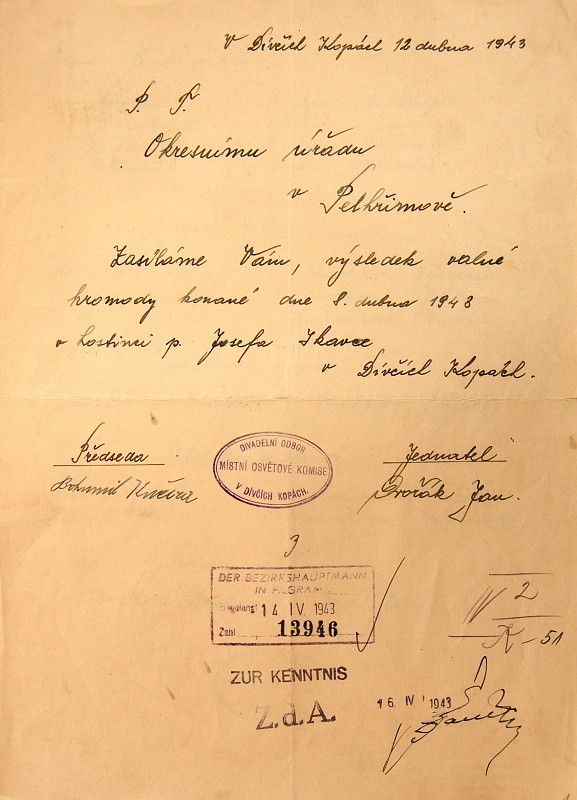 V Dívčích Kopách 12 dubna 1943
P. T.
Okresnímu úřadu
v Pelhřimově.
Zasíláme Vám, výsledek valné
hromady konané dne 8. dubna 1943
v hostinci p. Josefa
v Dívčích Kopách.
Předseda
Bohumil
Jednatel
Dvořák Jan.
DIVADELNÍ ODBOR
MÍSTNÍ OSVĚTOVÉ KOMISE
V DÍVČÍCH KOPÁCH.
3
DER BEZIRKSHAUPTMANN
IN PILGRAM
Eingelangt 14 IV. 1943
Zahl 13946
ZUR KENNTNIS
Z.d.A.
16. IV. 1943
V 2
K - 51